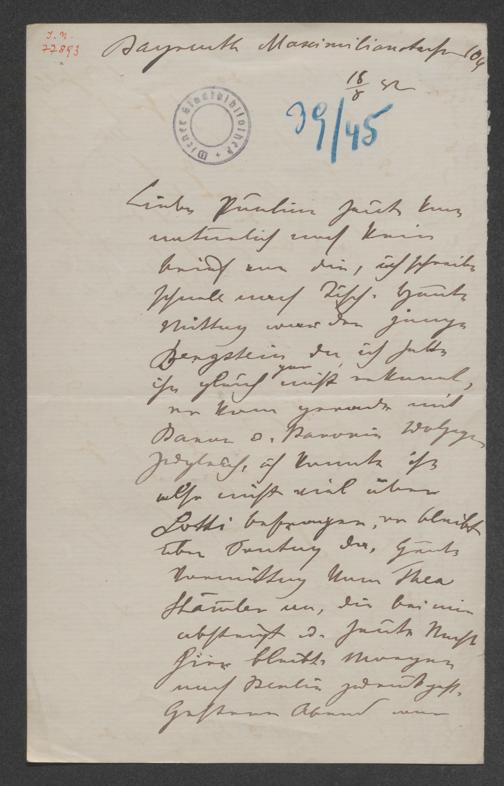 J. N.
77893
Bayreuth Maximilianstrasse 104
18/8 82
39/45
Wiener Stadtbibliothek
Liebe Pauline heute kam
natürlich noch kein
brief von dir, ich schreibe
schnell nach Tisch. Heute
Mittag war der junge
Bergstein da, ich hatte
ihn gleich gar nicht erkannt,
er kam gerade mit
Baron u. Baronin Wolzogen
, ich konnte ihn
also nicht viel über
Lotti befragen, er bleibt
über Sontag da. Heute
Vormittag kam Thea
an, die bei mir
absteigt u. heute Nacht
hier bleibt. Morgen
nach Berlin zurückgeht.
Gestern Abend war